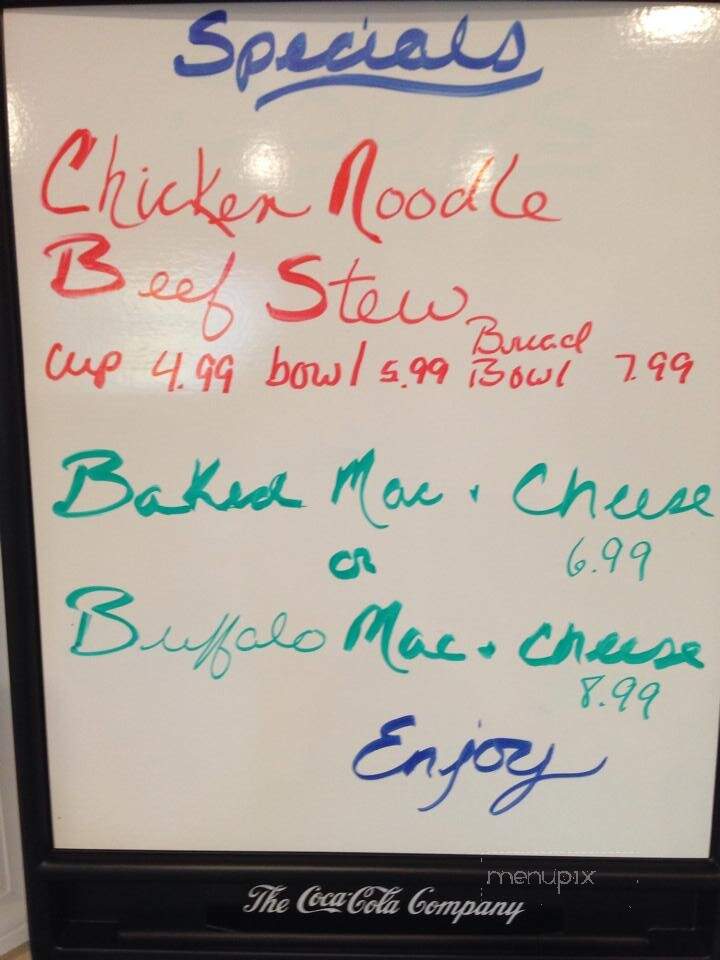 Specials
Chicken Noodle
Beef Stew
cup 4.99 bowl 5.99 Bread Bowl 7.99
Baked Mac + Cheese
6.99
or
Buffalo Mac + Cheese
8.99
Enjoy
menupix
The Coca-Cola Company